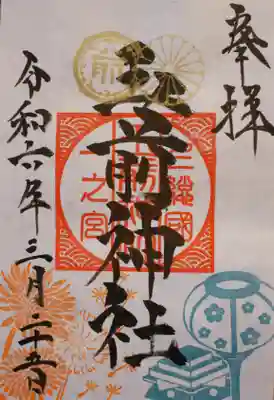 奉拝
玉前神社
上総國
一之宮
令和六年三月二十五日